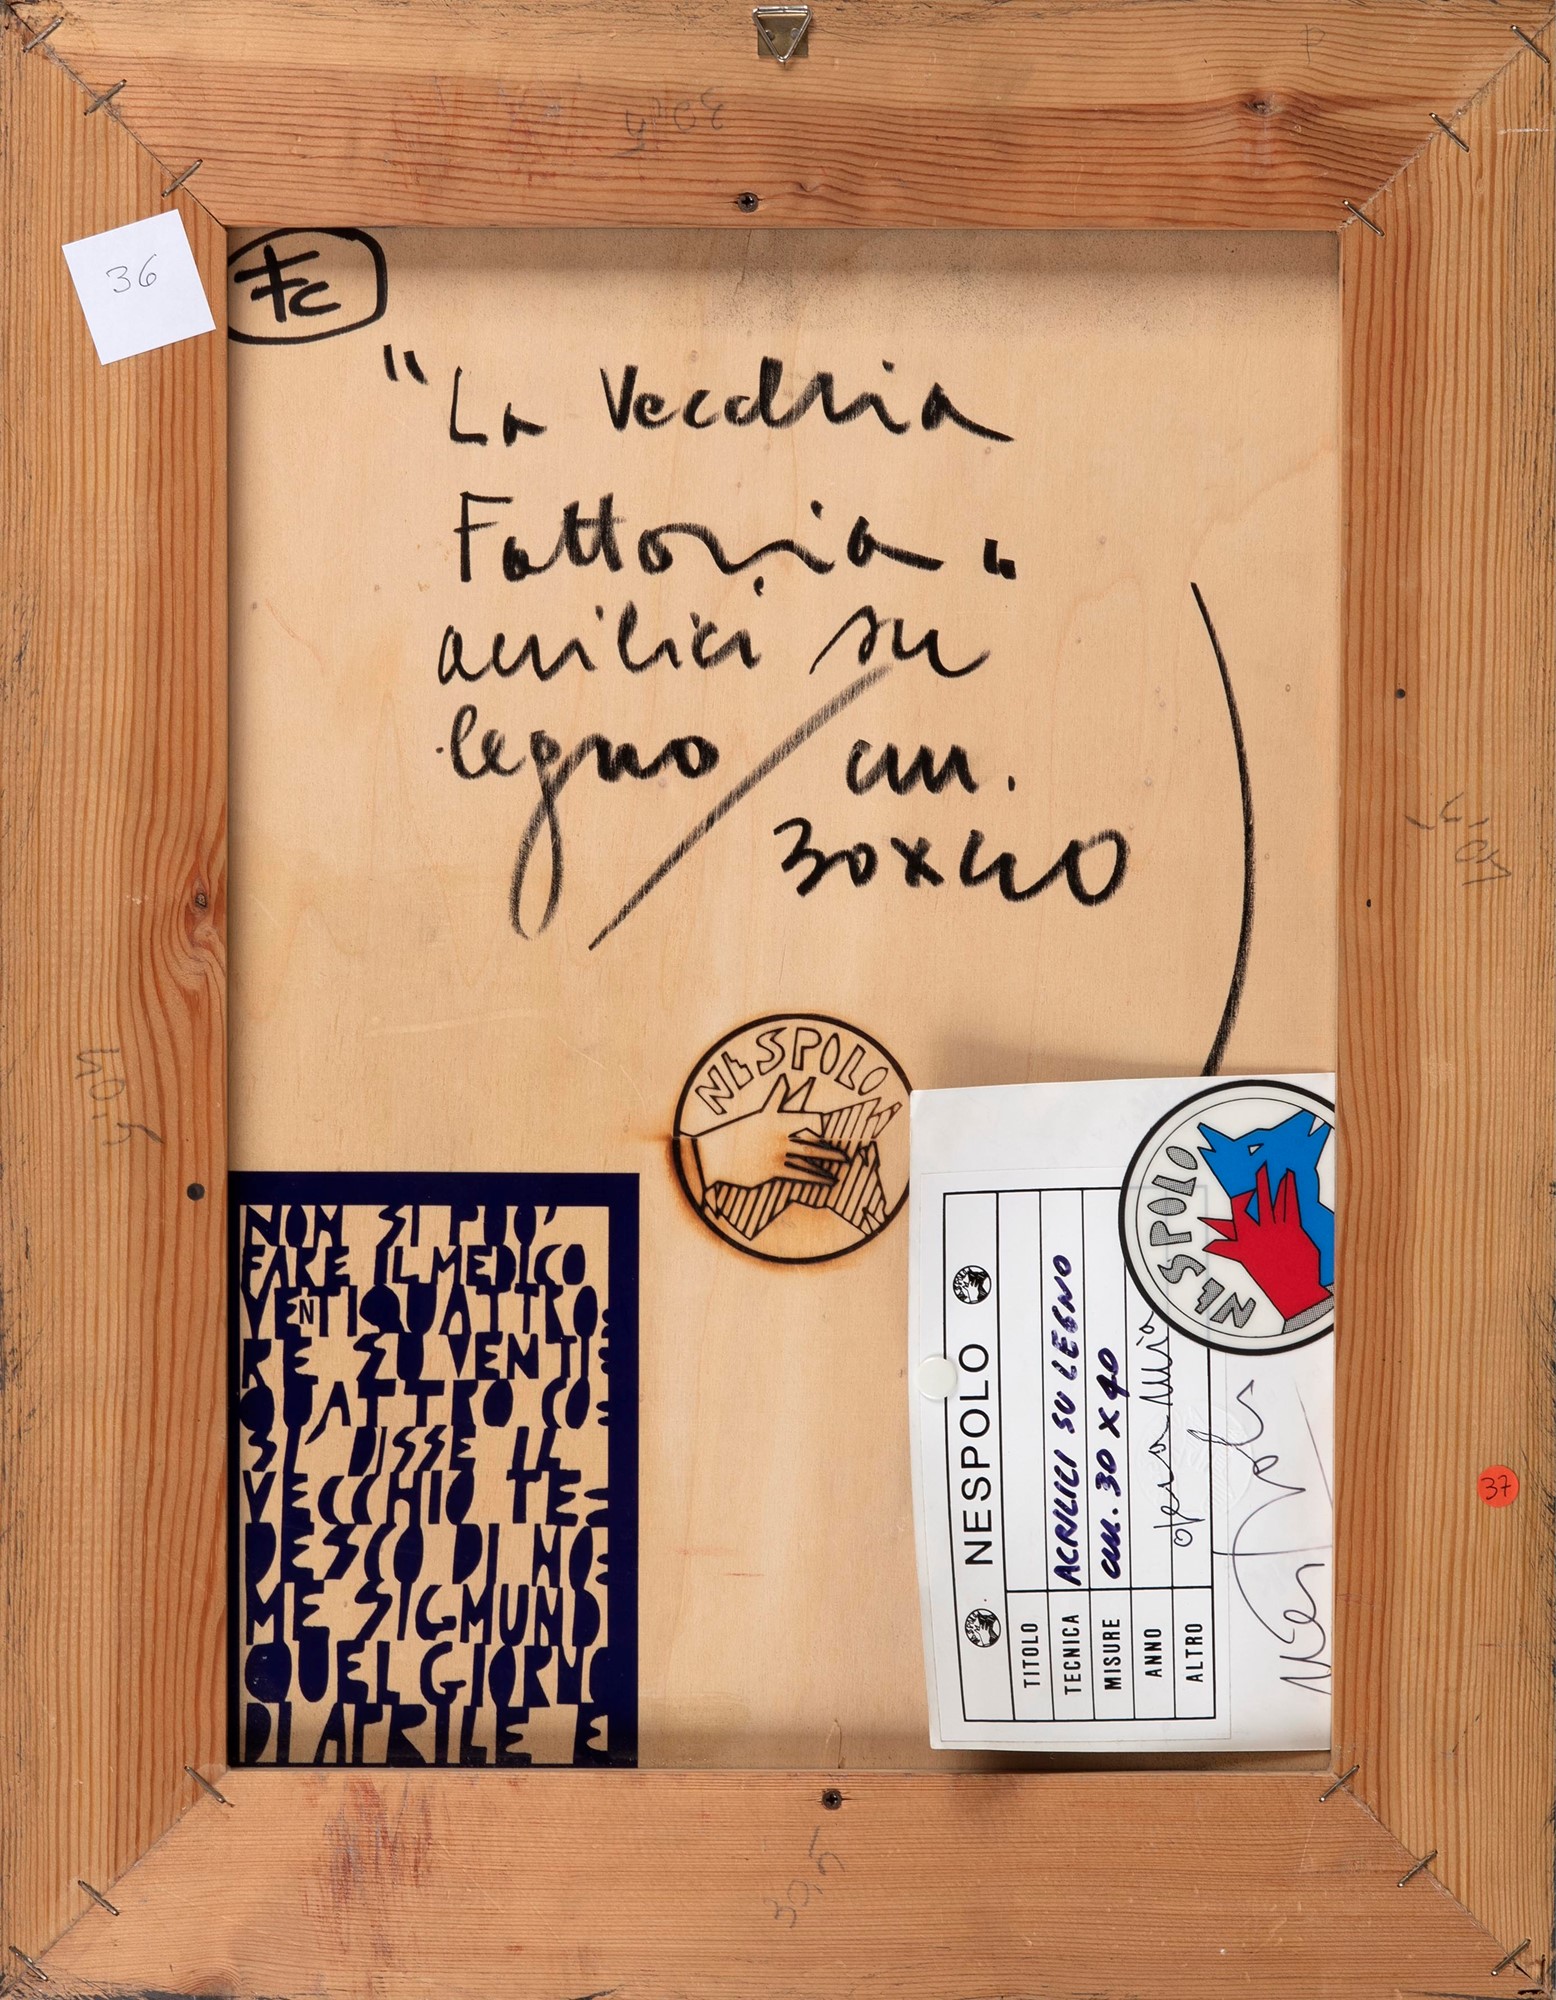 36
"La Vecchia
Fattoria"
acrilici su
legno / cm.
30x40
NESPOLO
NON SI PUO'
FARE IL MEDICO
VENTIQUATTRO
RE SU VENTI
QUATTRO CO
SI' DISSE IL
VECCHIO TE
DESCO DI NO
ME SIGMUND
QUEL GIORNO
DI APRILE E
NESPOLO
NESPOLO
TITOLO
TECNICA ACRILICI SU LEGNO
MISURE cm. 30 X 40
ANNO
ALTRO opera unica
Nespolo
37
30,5
40,5
40,5
30,5